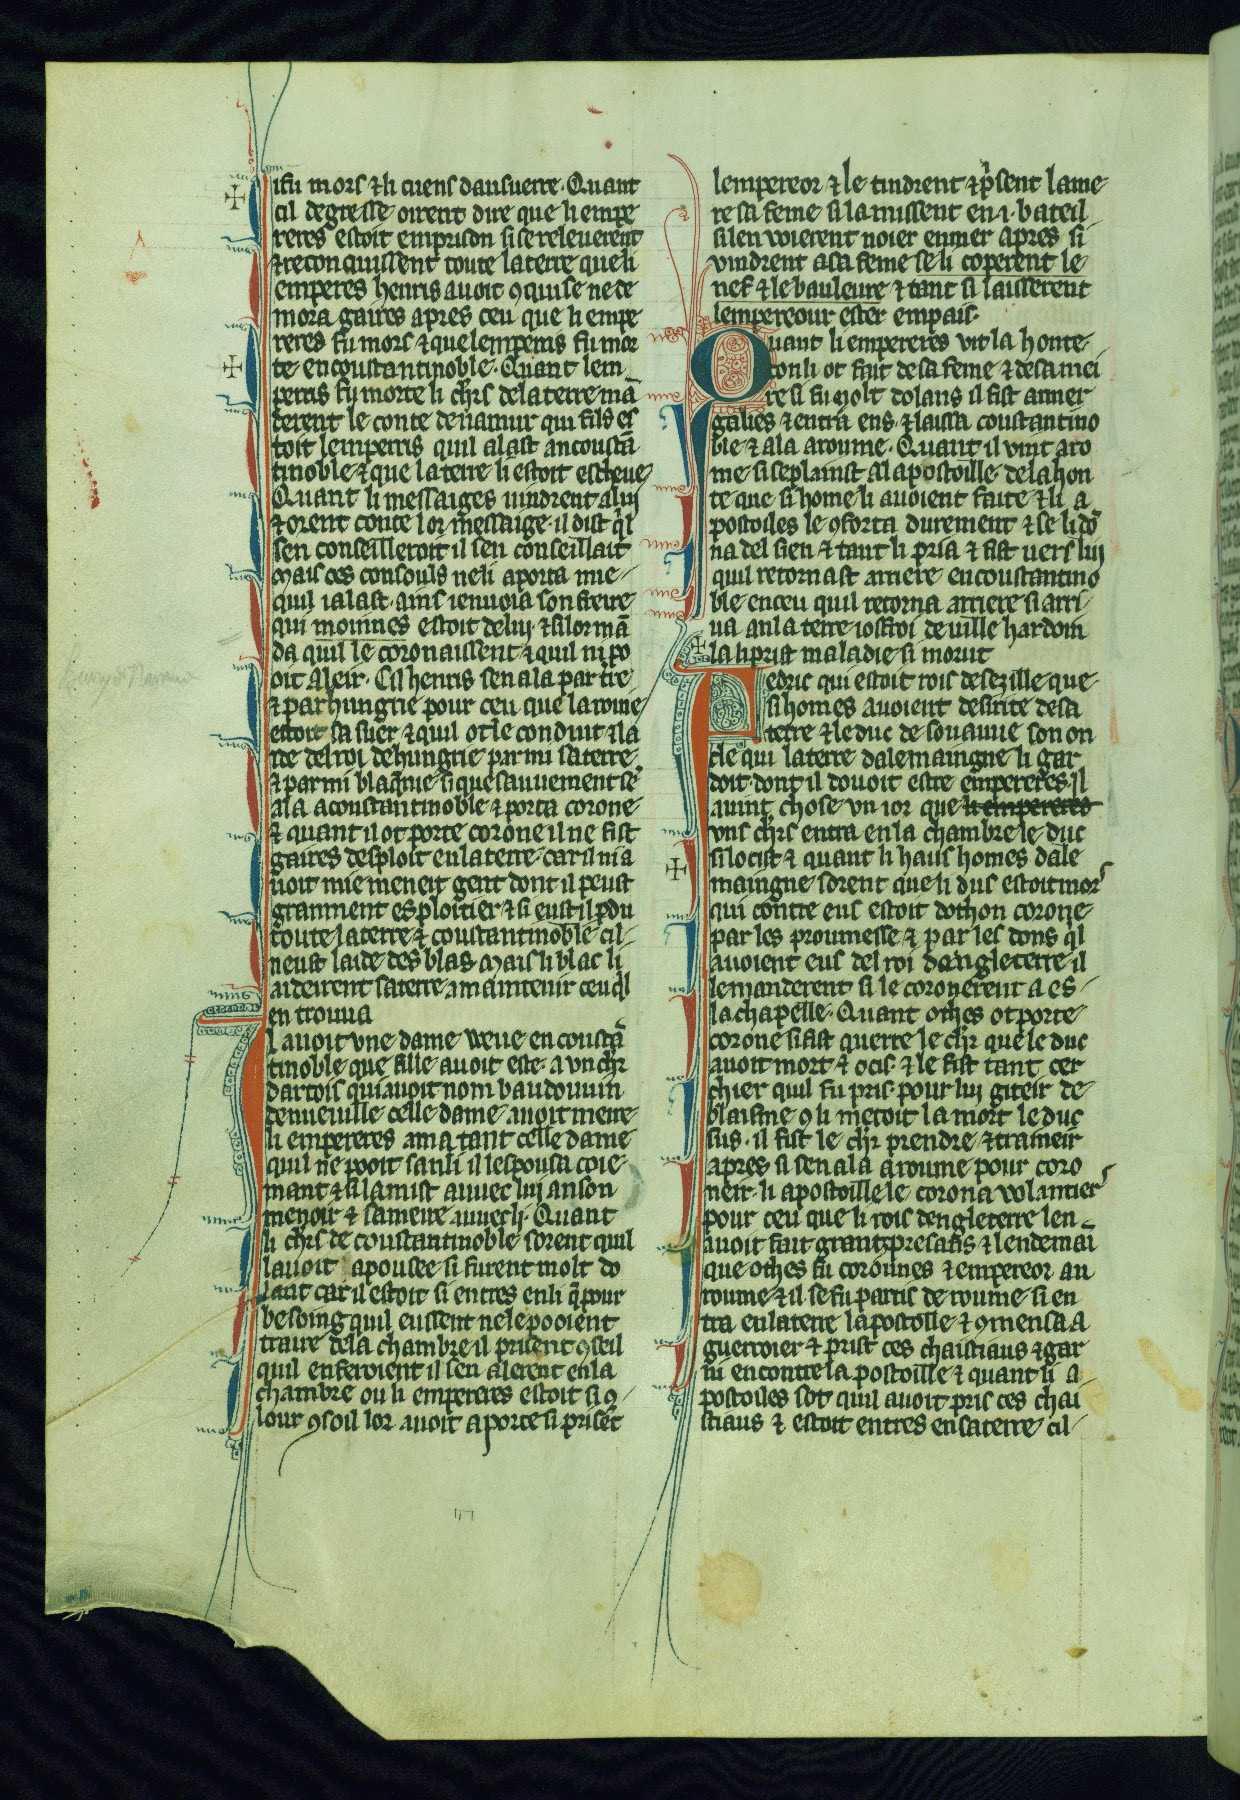 ifu mors ⁊ li cuens dausuerre· Quant
cil de gresse oirent dire que li empe
reres estoit emprison si se releuerent
⁊ reconquissent toute la terre que li
emperes henris auoit ꝯquise ne de
mora gaires apres ceu que li empe
reres fu mors ⁊ que lemperris fu mor
te en coustantinoble· Quant lem
perris fu morte li ch'rs de la terre mā
derent le conte de namur qui fils es
toit lemperris quil alast an coustā
tinoble ⁊ que la terre li estoit escheue
Quant li messaiges uindrent a luj
⁊ orent conte lor messaige· il dist q'l
sen conseilleroit il sen conseillait
Mais ces consouls ne li aporta mie
quil i alast· ains i enuoia son freire
qui moinnes estoit de luj ⁊ si lor mā
da quil le coronaussent ⁊ quil ni po
oit aleir· Cil henris sen ala par tre
⁊ par hungrie pour ceu que la roine
estoit sa suer ⁊ quil ot le conduit ⁊ la
ide del roi de hungrie par mi sa terre
⁊ par mi blaq̄nie si que sauuement se
ala a coustantinoble ⁊ porta corone
⁊ quant il ot porte corone il ne fist
gaires desploit en la terre· car il ni a
uoit mie meneit gent dont il peust
granment esploitier ⁊ si eust il p̄du
toute la terre ⁊ coustantinoble cil
neust laide des blas mais li blac li
aideirent sa terre a maintenir ceu q'l
en trouua
I auoit vne dame veue en coustā
tinoble que fille auoit este· a vn ch'r
dartois qui auoit nom baudouuin
de nueuille celle dame auoit meire
li empereres ama tant celle dame
quil ne pooit sanli il lespousa coie
mant ⁊ si la mist auuec luj an son
menoir ⁊ sa meire auuec li· Quant
li ch'rs de coustantinoble sorent quil
lauoit apousee si furent molt do
lant car il estoit si entres en li q̄ pour
besoing quil eussent ne le pooient
traire de la chambre il prisent ꝯseil
quil en feroient il sen alerent en la
chambre ou li empereres estoit si ꝯ
lour ꝯsoil lor auoit aporte si prisēt
lempereor ⁊ le tindrent ⁊ p'sent la me
re sa feme si la missent en ·i· bateil
si len voierent noier en mer apres si
vindrent a sa feme se li coperent le
nef ⁊ le bauleure ⁊ tant si laisserent
lempereour ester em pais·
Quant li empereres vit la honte
con li ot fait de sa feme ⁊ de sa mei
re si fu molt dolans il fist armer
galies ⁊ entra ens· ⁊ laissa coustantino
ble ⁊ ala a roume· Quant il vint a ro
me si se plainst a lapostoille· de la hon
te que si home li auoient faite ⁊ li a
postoiles le ꝯforta durement ⁊ se li dō
na del sien ⁊ tant li pria ⁊ fist uers luj
quil retornast arriere en coustantino
ble en ceu quil retorna arriere si arri
ua an la terre iosfroi de ville hardoin
la li prist maladie si morut
Fedric qui estoit rois de sezille que
si homes auoient desirite de sa
terre ⁊ le duc de souauue son on
cle qui la terre dalemaingne li gar
doit dont il douoit estre empereres· Il
auint chose vn ior que li empereres
vns ch'rs entra en la chambre le duc
si locist ⁊ quant li haus homes dale
maingne sorent que li dus estoit mor
qui contre eus estoit dothon corone
par les proumesse ⁊ par les dons q'l
auoient eus del roi dengleterre il
le manderent si le coronerent a es
la chapelle· Quant othes ot porte
corone si fist querre le ch'r que le duc
auoit mort ⁊ ocis· ⁊ le fist tant cer
chier quil fu pris· pour luj giteir de
blaisme ꝯ li metoit la mort le duc
sus· il fist le ch'r prendre ⁊ traineir
apres si sen ala a roume pour coro
neir· li apostoille le corona volantier
pour ceu que li rois dengleterre len
auoit fait grant presans ⁊ lendemai
que othes fu corounes ⁊ empereor au
roume ⁊ il se fu partis de roume si en
tra en la terre lapostolle ⁊ ꝯmensa a
guerroier ⁊ prist ces chaistiaus ⁊ gar
ni encontre lapostoille ⁊ quant li a
postoiles sot quil auoit pris ces chai
stiaus ⁊ estoit entres en sa terre cil